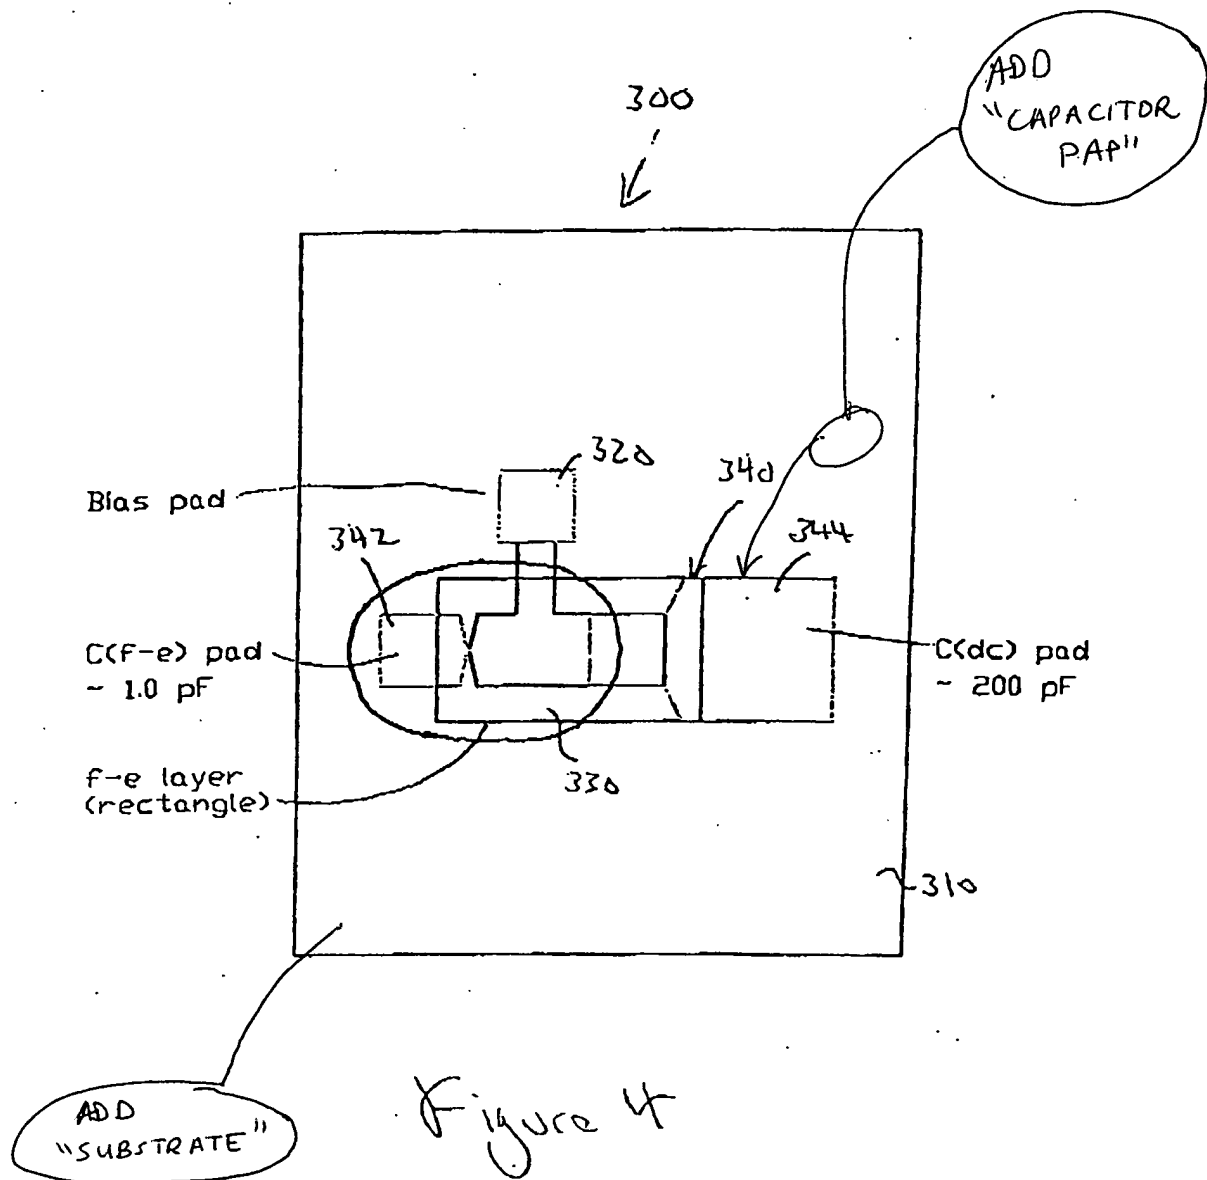 ADD
"CAPACITOR
PAP"
300
320
340
Bias pad
342
344
C(f-e) pad
~ 1.0 pF
C(dc) pad
~ 200 pF
f-e layer
(rectangle)
330
310
ADD
"SUBSTRATE"
Figure 4